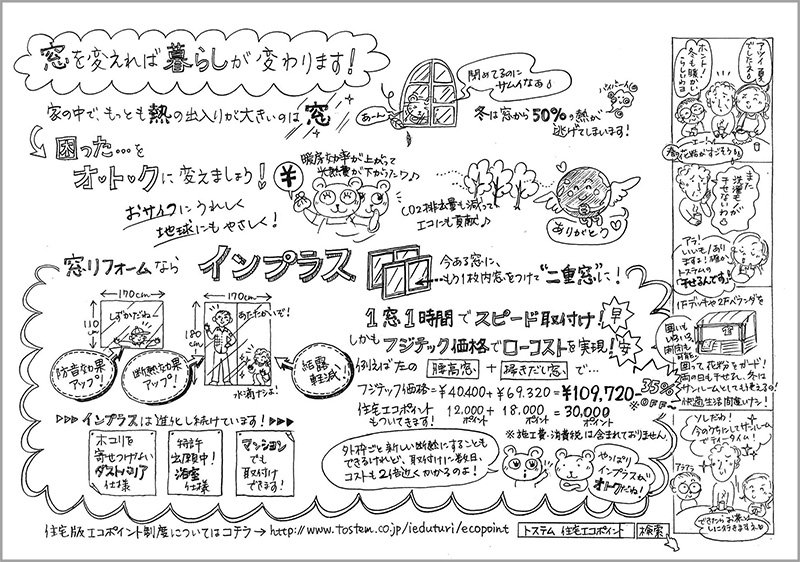 窓を変えれば暮らしが変わります!
家の中で、もっとも熱の出入りが大きいのは窓
閉めてるのに
サムイなあ
あーん
冬は窓から50%の熱が
逃げてしまいます!
困った…を
オ・ト・クに変えましょう!
おサイフにうれしく
地球にもやさしく!
暖房効率が上がって
光熱費が下がったワ♪
¥
CO2排出量も減って
エコにも貢献♪
ありがとう
窓リフォームなら
インプラス
今ある窓に、
もう1枚内窓をつけて"二重窓"に!
170cm
110cm
しずかだね
170cm
180cm
あたたかいぞ!
水滴なしよ!
防音効果
アップ!
断熱効果
アップ!
結露
軽減!
1窓1時間でスピード取付け!
早
しかもフジテック価格でローコストを実現!
安
例えば左の 腰高窓 + 掃きだし窓 で…
フジテック価格=¥40.400+¥69.320=¥109,720-
35%
OFF~
住宅エコポイント
もついてきます!
12.000ポイント+18.000ポイント=30.000ポイント
※施工費・消費税は含まれておりません
▷▷▷インプラスは進化し続けています!▷▷▷
ホコリを
寄せつけない
ダストバリア
仕様
特許
出願中!
浴室
仕様
マンション
でも
取付け
できます!
外枠ごと新しい断熱にすることも
できるけれど、取付けに数日、
コストも2倍近くかかるのよ!
やっぱり
インプラスが
オトクだね!
住宅版エコポイント制度についてはコチラ→http://www.tostem.co.jp/ieduturi/ecopoint
トステム 住宅エコポイント
検索
アツイ夏
でしたネ
ホント!
冬も暖かい
らしいわヨ
エー!
春の花粉がすごそう
また
洗濯もの
干せないわが
アラ!
いいモノあり
ますよ!確か
トステムの
「干せるんです」
1Fデッキや2Fベランダを
囲って花粉をガード!
雨の日も干せるし、冬は
サンルームとしても使えるの!
快適生活間違いナシ!
ソレだわ!
今のうちにしてサンルーム
でティータイム!
アラアラ
できたらお茶
しに行きますネ